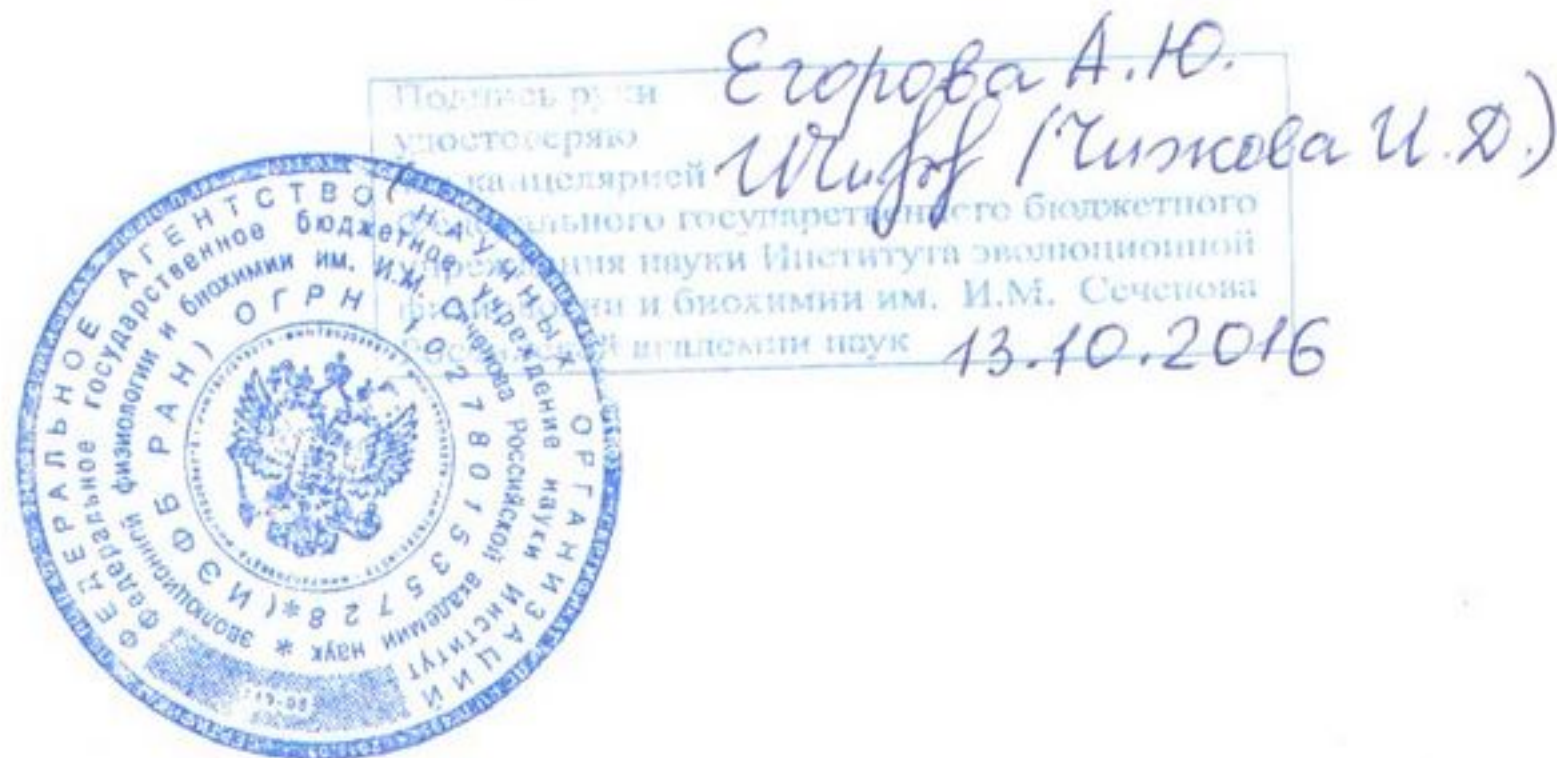 Егорова А.Ю.
Подпись руки
удостоверяю
(Чижова И.Д.)
канцелярией
Федерального государственного бюджетного
учреждения науки Института эволюционной
физиологии и биохимии им. И.М. Сеченова
Российской академии наук 13.10.2016
ФЕДЕРАЛЬНОЕ АГЕНТСТВО НАУЧНЫХ ОРГАНИЗАЦИЙ
Федеральное государственное бюджетное учреждение науки Институт
эволюционной физиологии и биохимии им. И.М. Сеченова Российской академии наук *
(ИЭФБ РАН) ОГРН 1027801535728*